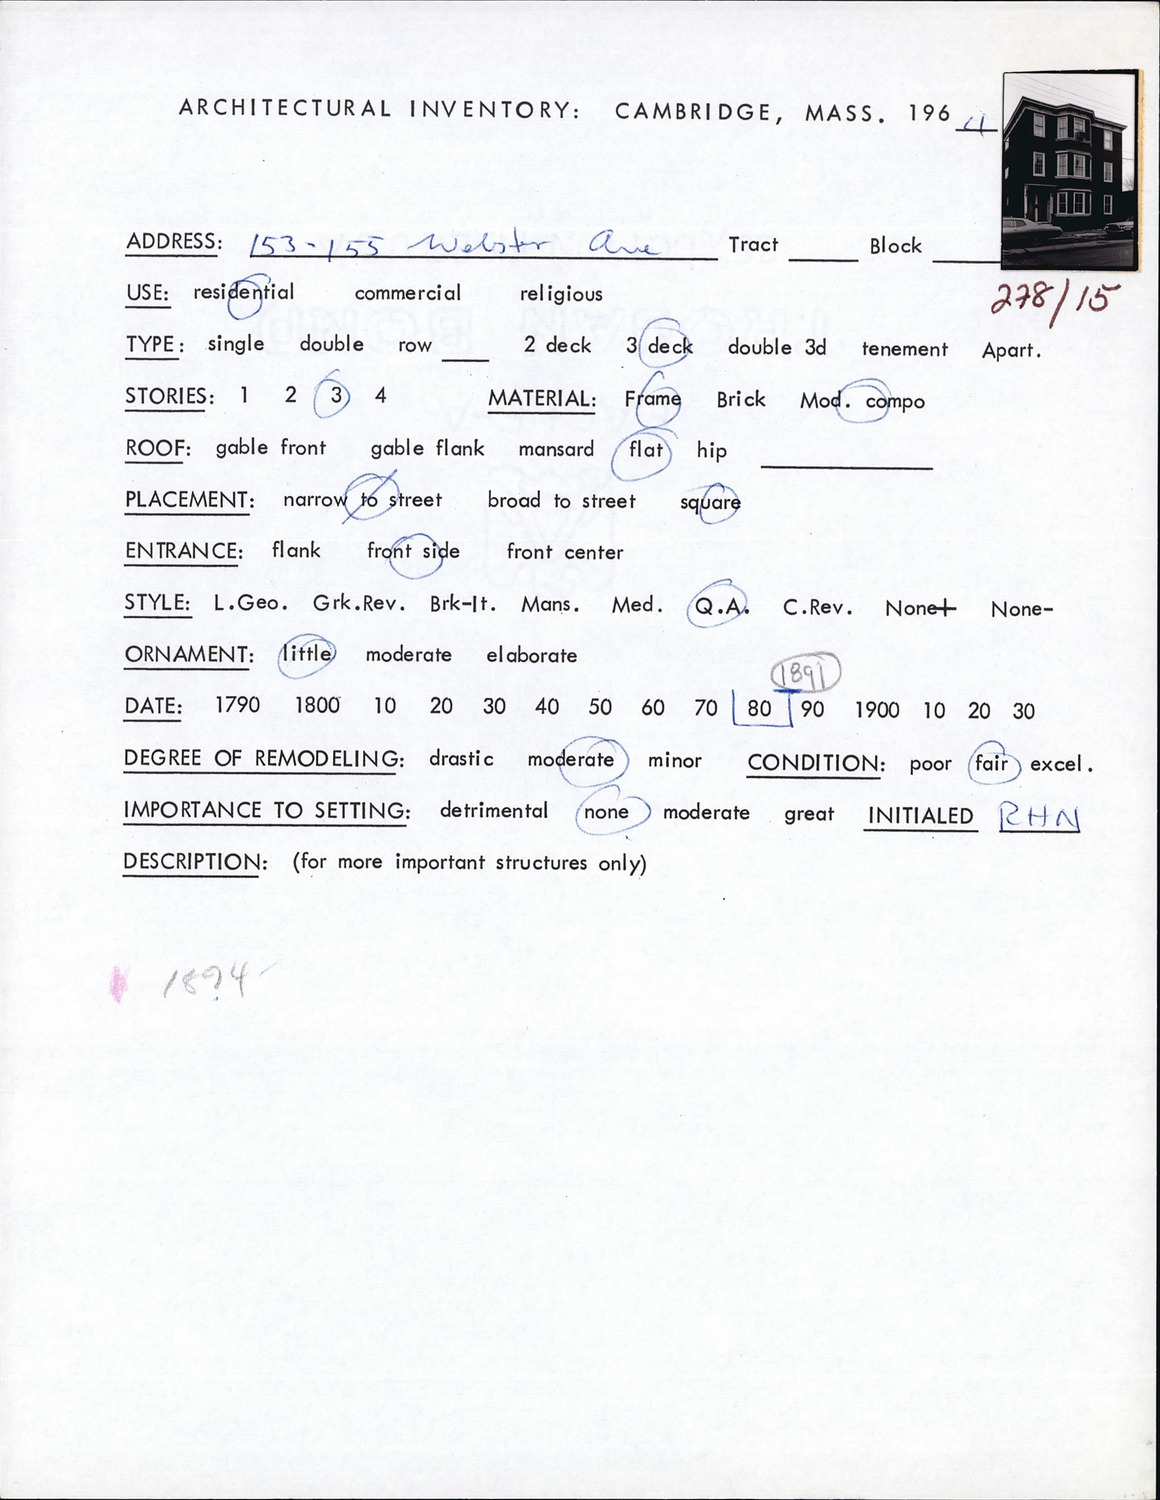 ARCHITECTURAL INVENTORY: CAMBRIDGE, MASS. 1964
ADDRESS: 153-155 Webster Ave Tract ____ Block ____
278/15
USE: residential commercial religious
TYPE: single double row ____ 2 deck 3 deck double 3d tenement Apart.
STORIES: 1 2 3 4 MATERIAL: Frame Brick Mod. compo
ROOF: gable front gable flank mansard flat hip ____
PLACEMENT: narrow to street broad to street square
ENTRANCE: flank front side front center
STYLE: L.Geo. Grk.Rev. Brk-It. Mans. Med. Q.A. C.Rev. None+ None-
ORNAMENT: little moderate elaborate
1891
DATE: 1790 1800 10 20 30 40 50 60 70 80 90 1900 10 20 30
DEGREE OF REMODELING: drastic moderate minor CONDITION: poor fair excel.
IMPORTANCE TO SETTING: detrimental none moderate great INITIALED RHN
DESCRIPTION: (for more important structures only)
1894